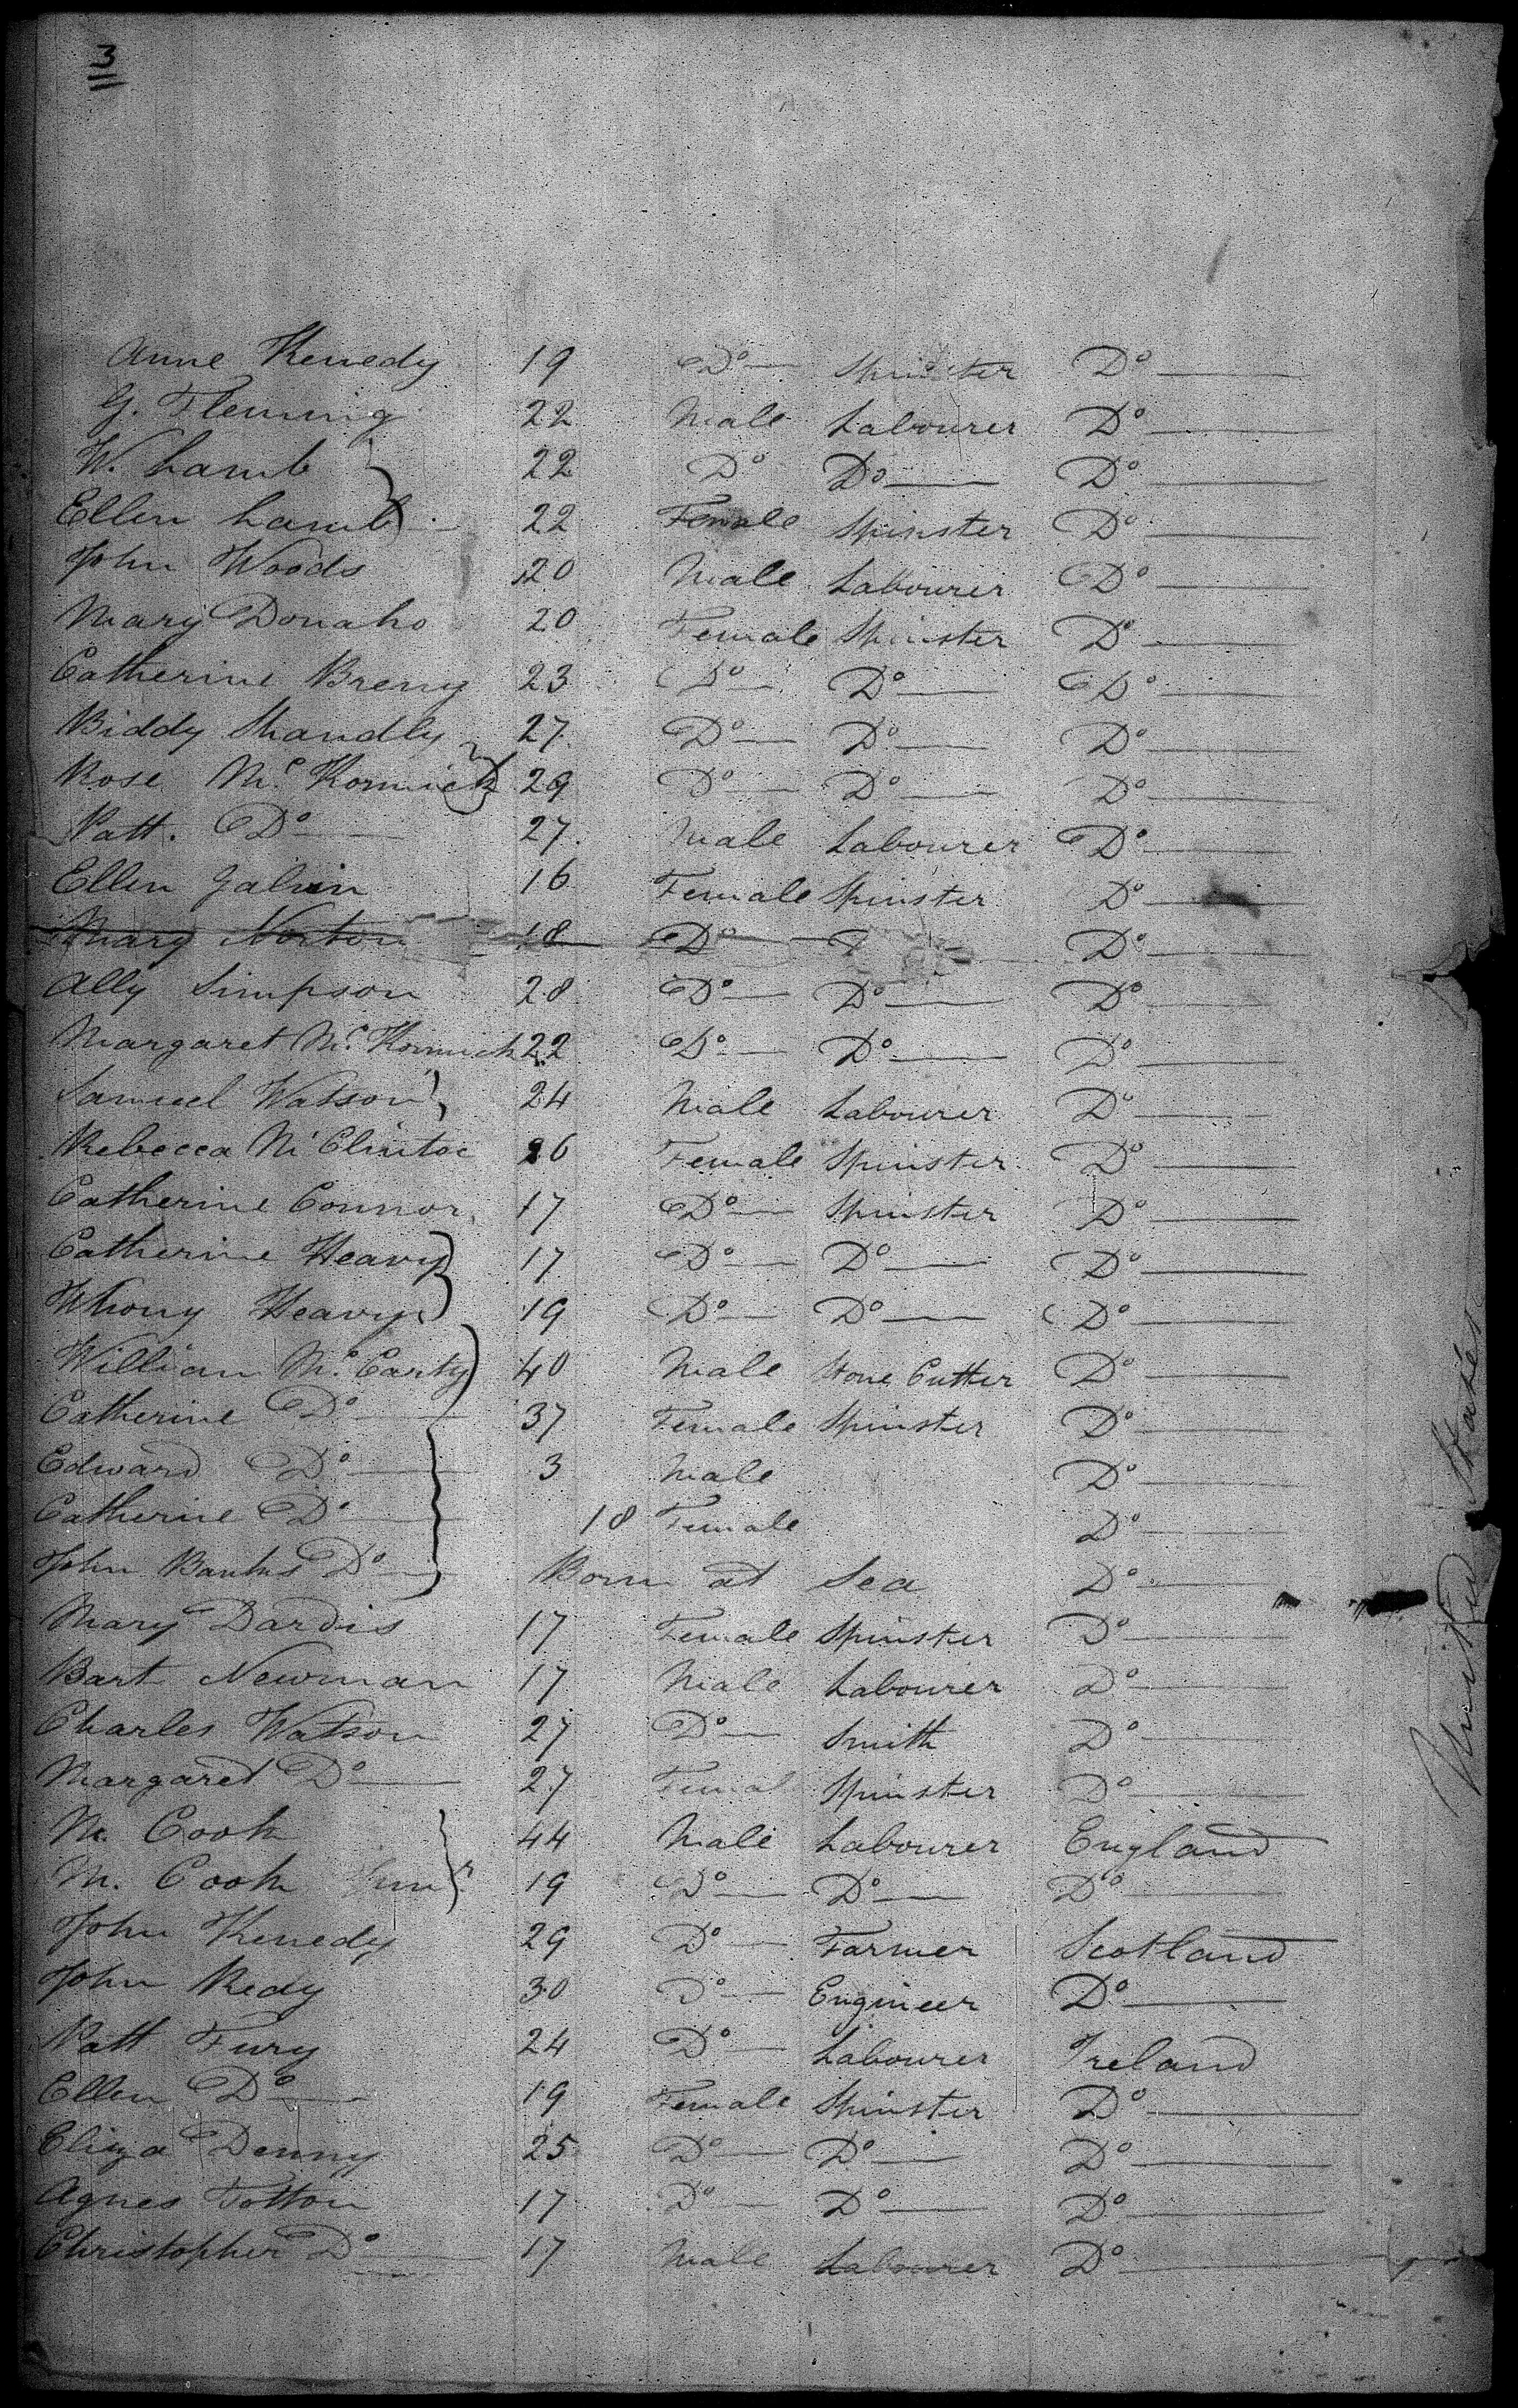 3
Anne Kenedy 19 Do Spinster Do
G. Fleming 22 Male Labourer Do
W. Lamb 22 Do Do Do
Ellen Lamb 22 Female Spinster Do
John Woods 20 Male Labourer Do
Mary Donaho 20 Female Spinster Do
Catherine Breny 23 Do Do Do
Biddy Shandly 27 Do Do Do
Rose Mc Kormick 29 Do Do Do
Patt. Do 27 Male Labourer Do
Ellen Galvin 16 Female Spinster Do
Mary Norton 18 Do Do
Ally Simpson 28 Do Do Do
Margaret Mc Kormick 22 Do Do Do
Samuel Watson 24 Male Labourer Do
Rebecca Mc Clintoc 26 Female Spinster Do
Catherine Connor 17 Do Spinster Do
Catherine Heavy 17 Do Do Do
Whony Heavy 19 Do Do Do
William Mc Carty 40 Male Stone Cutter Do
Catherine Do 37 Female Spinster Do
Edward Do 3 Male Do
Catherine Do 18 Female Do
John Banks Do Born at Sea Do
Mary Dardis 17 Female Spinster Do
Bart Newman 17 Male Labourer Do
Charles Watson 27 Do Smith Do
Margaret Do 27 Femal Spinster Do
M. Cook 44 Male Labourer England
M. Cook Junr 19 Do Do Do
John Kenedy 29 Do Farmer Scotland
John Redy 30 Do Engineer Do
Patt Fury 24 Do Labourer Ireland
Ellen Do 19 Female Spinster Do
Eliza Denny 25 Do Do Do
Agnes Totton 17 Do Do Do
Christopher Do 17 Male Labourer Do
United States